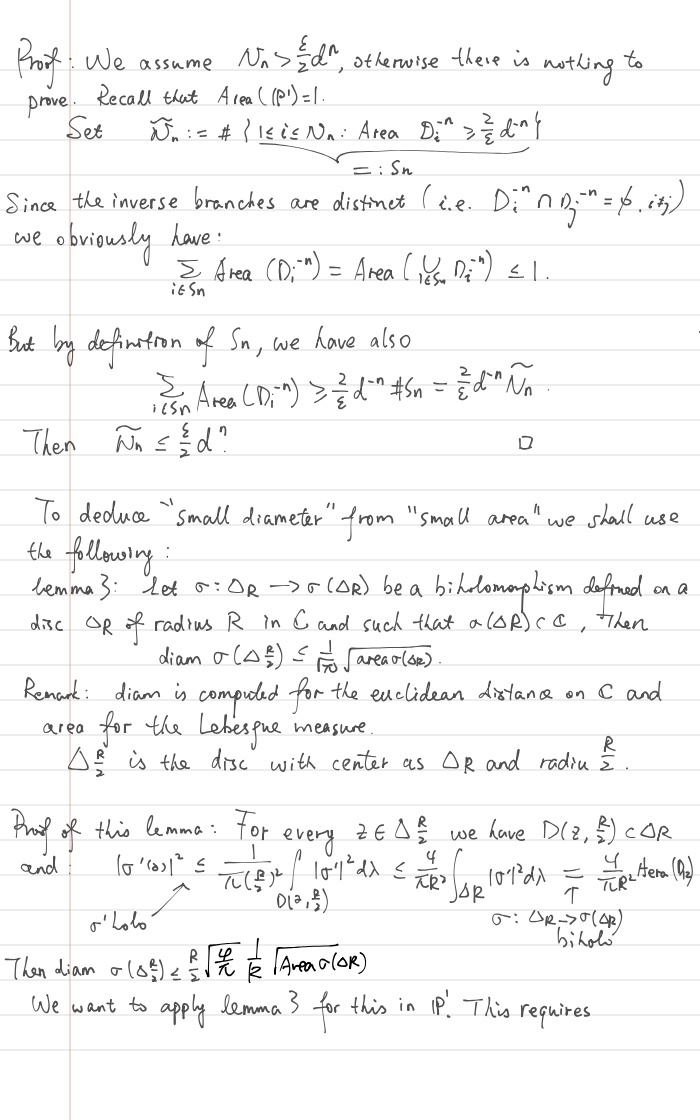 Proof: We assume Nₙ > ε/2 dⁿ, otherwise there is nothing to
prove. Recall that Area(ℙ¹)=1.
Set Ñₙ := # { 1≤i≤Nₙ : Area Dᵢ⁻ⁿ ≥ 2/ε d⁻ⁿ }
=: Sn
Since the inverse branches are distinct (i.e. Dᵢ⁻ⁿ ∩ Dⱼ⁻ⁿ = ∅. i≠j)
we obviously have:
∑_{i∈Sn} Area (Dᵢ⁻ⁿ) = Area ( ∪_{i∈Sn} Dᵢ⁻ⁿ) ≤ 1.
But by definition of Sn, we have also
∑_{i∈Sn} Area(Dᵢ⁻ⁿ) ≥ 2/ε d⁻ⁿ #Sn = 2/ε d⁻ⁿ Ñₙ.
Then Ñₙ ≤ ε/2 dⁿ. □
To deduce "small diameter" from "small area" we shall use
the following:
lemma 3: Let σ: ΔR → σ(ΔR) be a biholomorphism defined on a
disc ΔR of radius R in ℂ and such that σ(ΔR) ⊂ ℂ, Then
diam σ(Δ R/2) ≤ 1/√π √area σ(ΔR).
Remark: diam is computed for the euclidean distance on ℂ and
area for the Lebesgue measure.
Δ R/2 is the disc with center as ΔR and radiu R/2.
Proof of this lemma: For every z ∈ Δ R/2 we have D(z, R/2) ⊂ ΔR
and: |σ'(z)|² ≤ 1/π(R/2)² ∫_{D(z, R/2)} |σ'|² dλ ≤ 4/πR² ∫_{ΔR} |σ'|² dλ = 4/πR²
σ' holo
↑ σ: ΔR → σ(ΔR)
biholo
Then diam σ(Δ R/2) ≤ R/2 √4/π 1/R √Area σ(ΔR)
We want to apply lemma 3 for this in ℙ¹. This requires